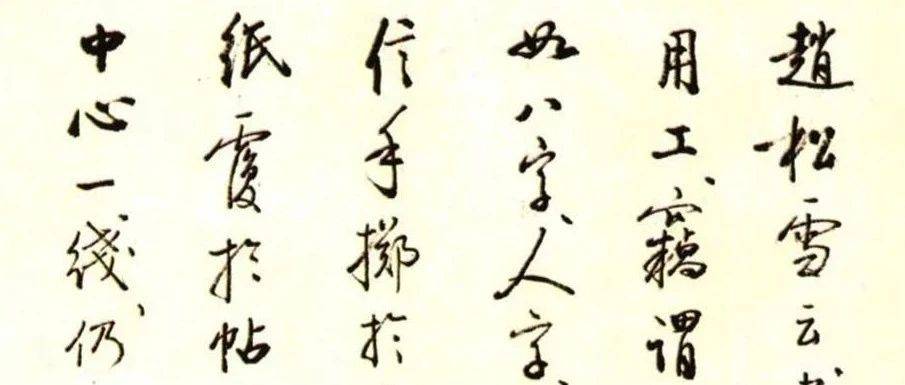 趙松雪云
用工竊謂
如八字人字
信手擲於
紙覆於帖
中心一綫仍